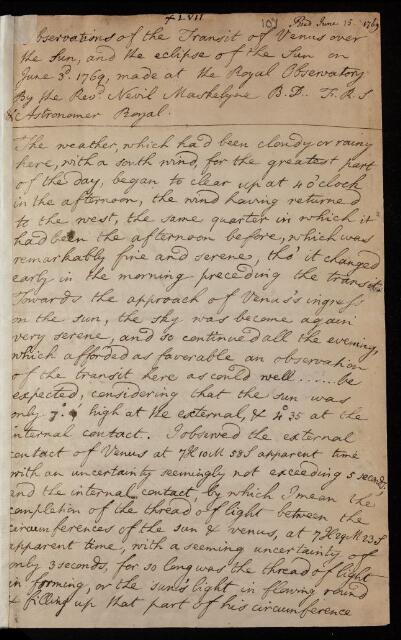 XLVII
107 Red June 15. 1769
Observations of the Transit of Venus over
the Sun, and the eclipse of the Sun on
June 3d. 1769, made at the Royal Observatory
By the Revd. Nevil Maskelyne B.D. F.R.S
& Astronomer Royal.
The weather, which had been cloudy or rainy
here, with a south wind, for the greatest part
of the day, began to clear up at 4 o'clock
in the afternoon, the wind having returned
to the west, the same quarter in which it
had been the afternoon before, which was
remarkably fine and serene, tho' it changed
early in the morning preceding the transit
Towards the approach of Venus's ingress
on the sun, the sky was become again
very serene, and so continued all the evening,
which afforded as favorable an observation
of the transit here as could well ...... be
expected, considering that the sun was
only 7° high at the external, & 4° 35 at the
internal contact. I observed the external
contact of Venus at 7H 10M 58S apparent time
with an uncertainty seemingly not exceeding 5 seconds;
and the internal contact, by which I mean the
completion of the thread of light between the
circumferences of the sun & venus, at 7H 29M 23S
apparent time, with a seeming uncertainty of
only 3 seconds, for so long was the thread of light
in forming, or the sun's light in flowing round
& filling up that part of his circumference